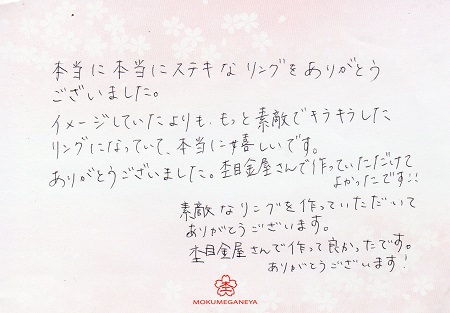 本当に本当にステキなリングをありがとう
ございました。
イメージしていたよりも、もっと素敵でキラキラした
リングになっていて、本当に嬉しいです。
ありがとうございました。杢目金屋さんで作っていただけて
よかったです!!
素敵なリングを作っていただいて
ありがとうございます。
杢目金屋さんで作って良かったです。
ありがとうございます!
杢
MOKUMEGANEYA